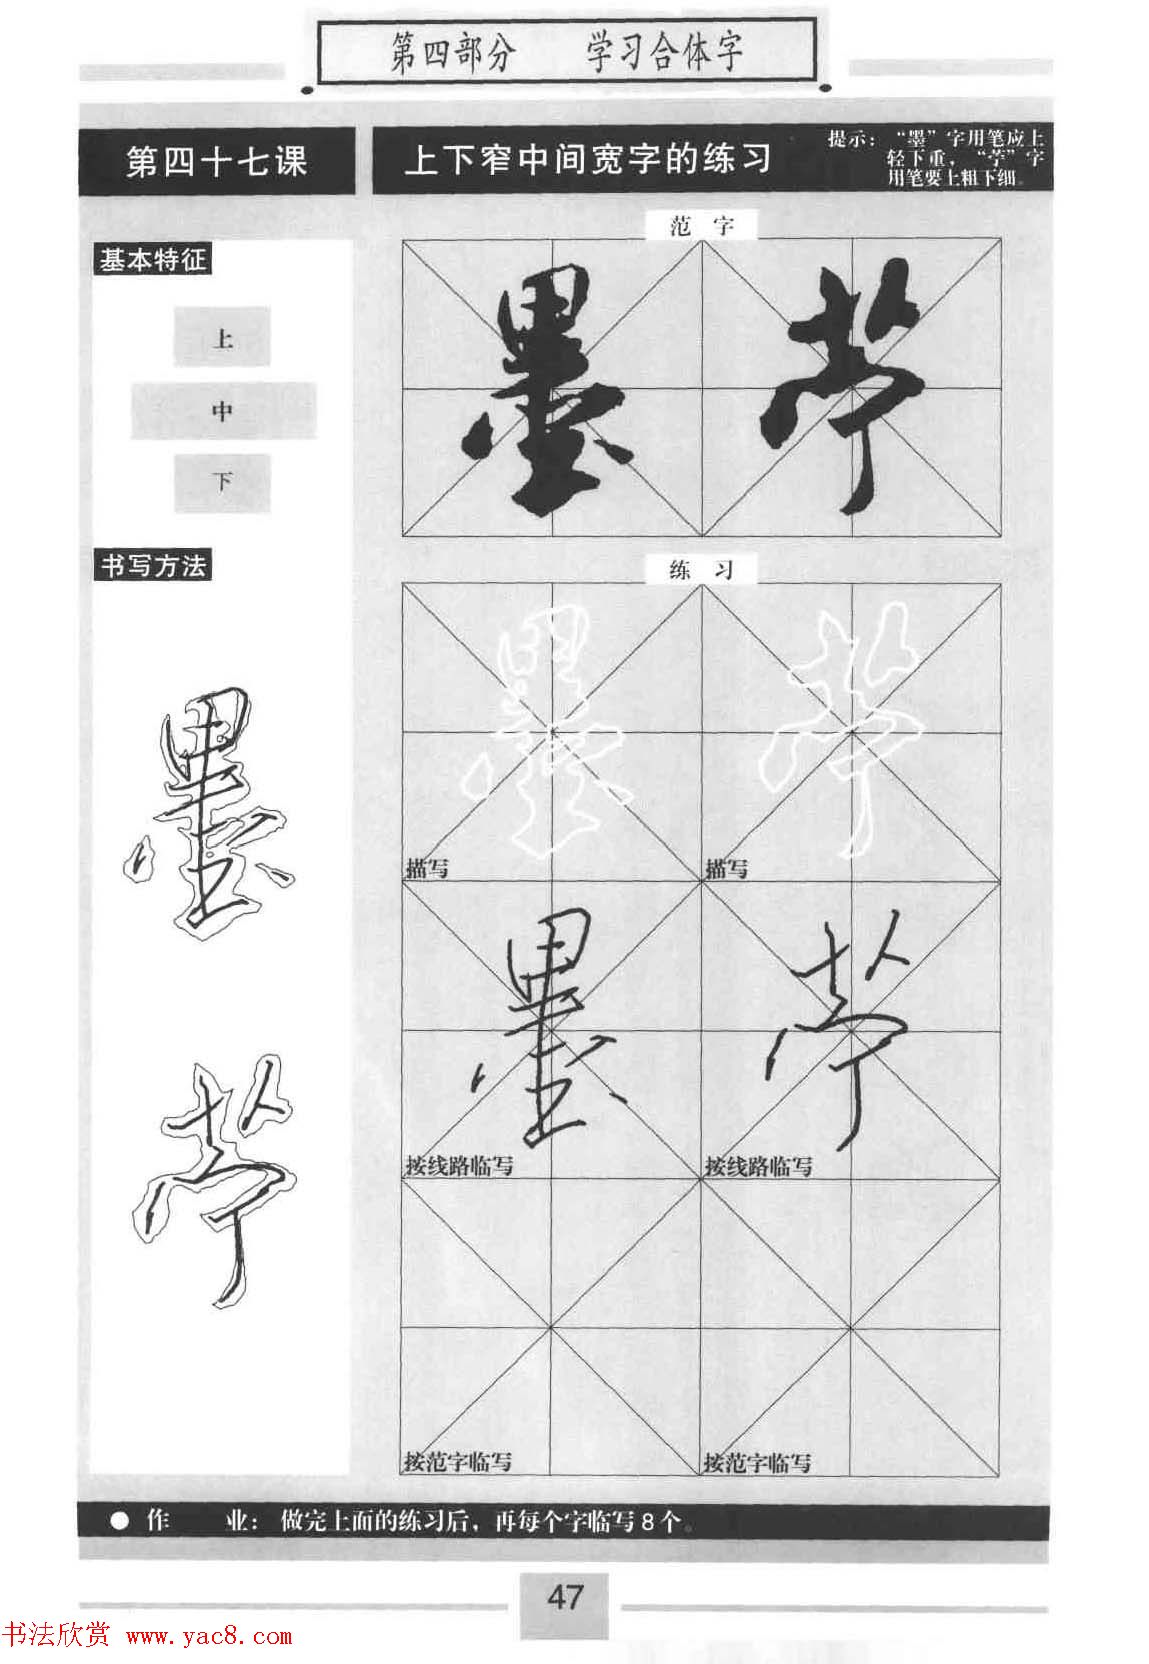 第四部分 学习合体字
第四十七课
上下窄中间宽字的练习
提示：“墨”字用笔应上
轻下重，“苧”字
用笔要上粗下细。
基本特征
上
中
下
书写方法
墨
苧
范 字
墨 苧
练 习
墨 苧
描写 描写
墨 苧
按线路临写 按线路临写
按范字临写 按范字临写
● 作 业：做完上面的练习后，再每个字临写8个。
47
书法欣赏 www.yac8.com